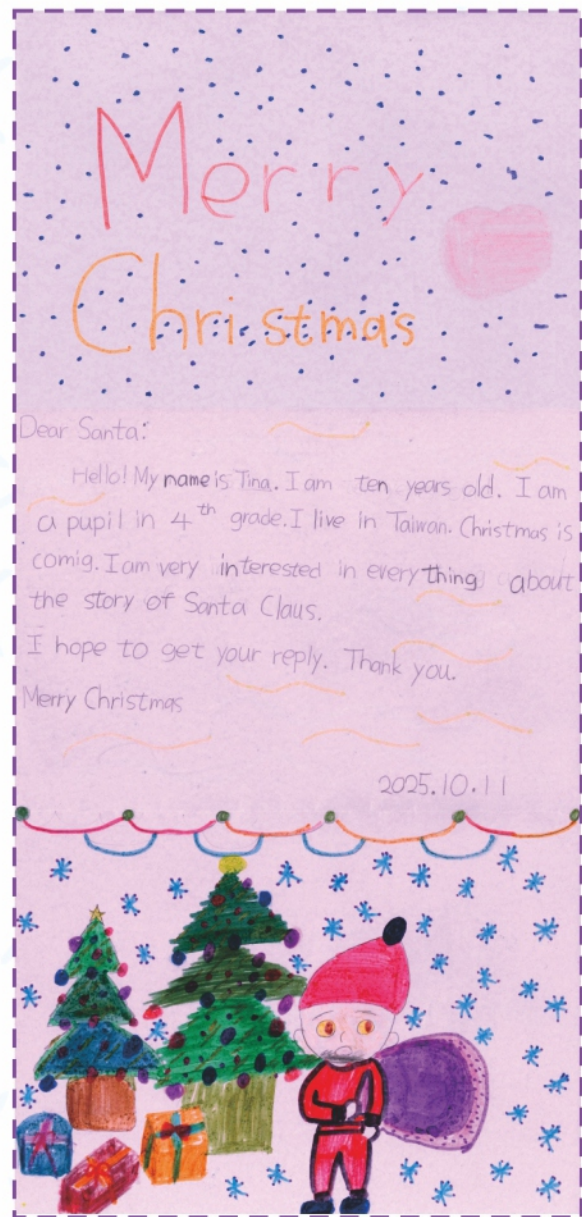 Merry
Christmas
Dear Santa:
Hello! My name is Tina. I am ten years old. I am
a pupil in 4th grade. I live in Taiwan. Christmas is
comig. I am very interested in everything about
the story of Santa Claus.
I hope to get your reply. Thank you.
Merry Christmas
2025.10.11